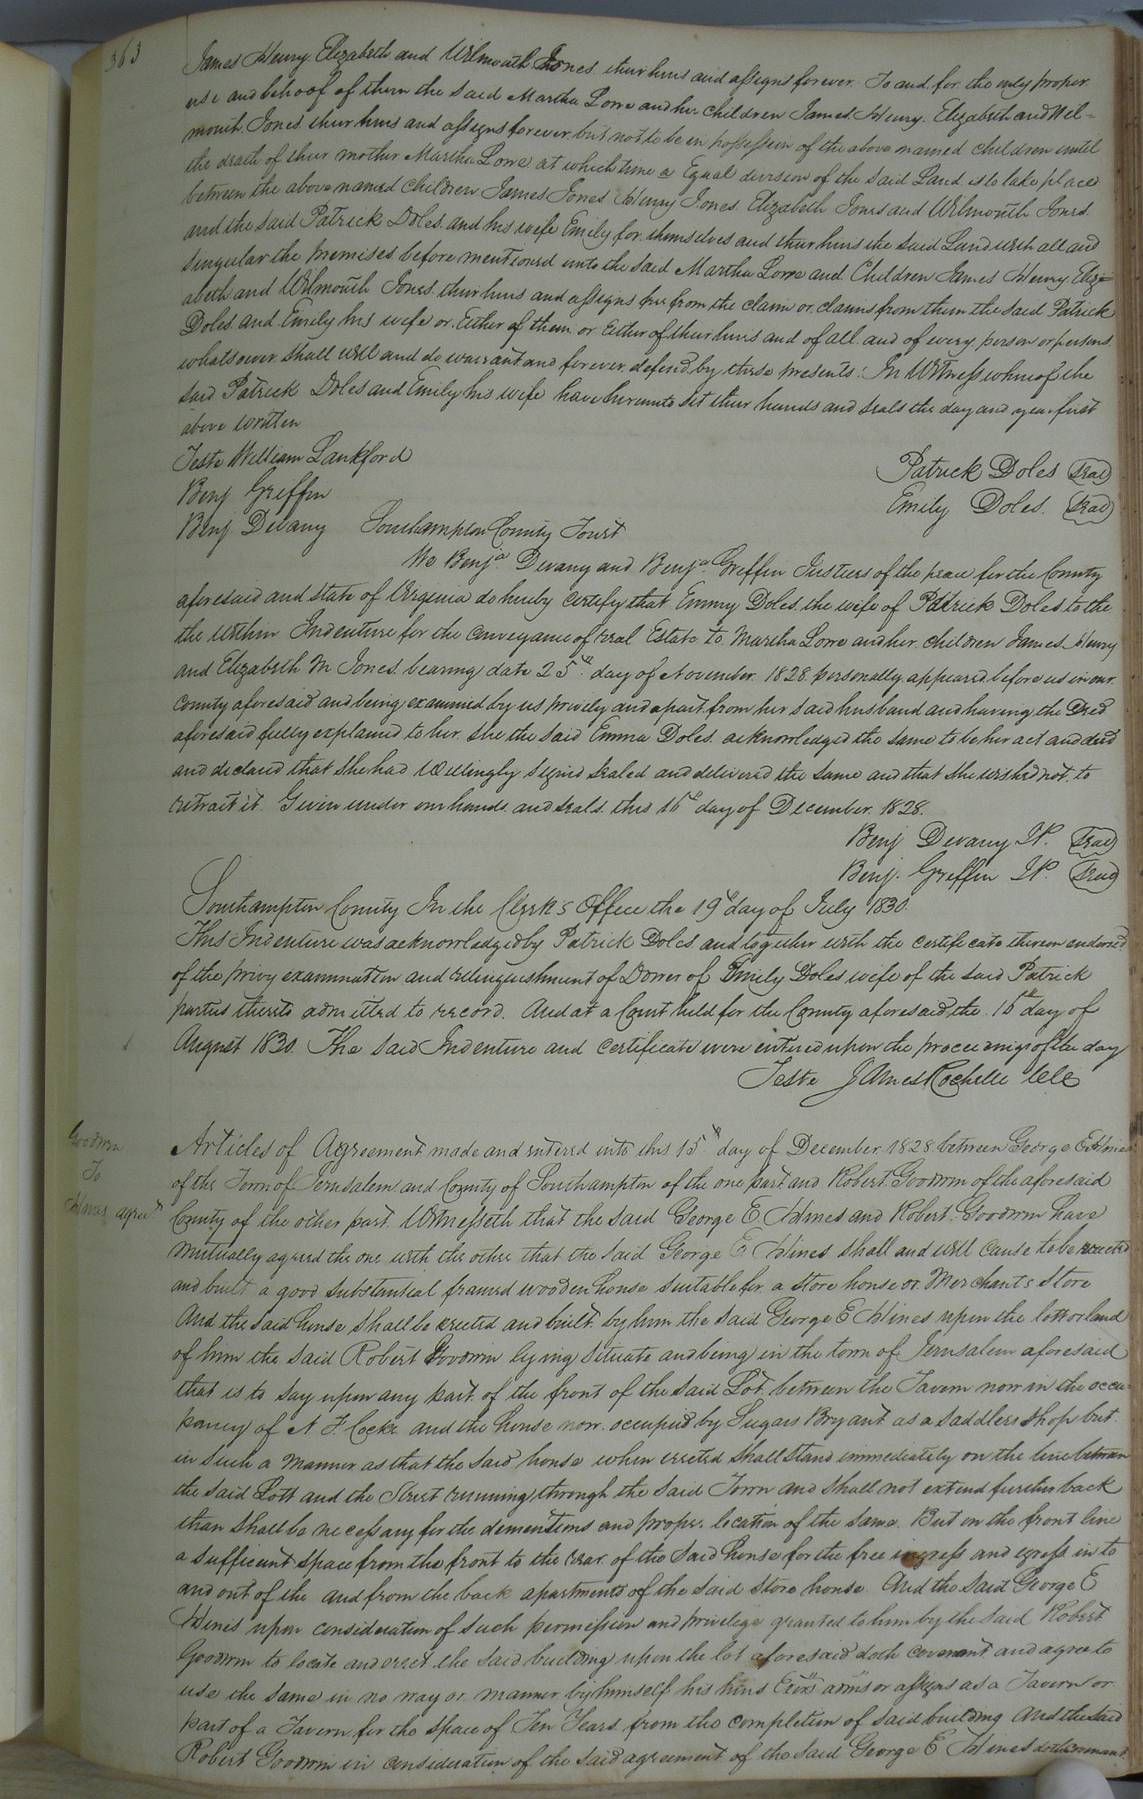 363
James Henry Elizabeth and Wilmouth Jones their heirs and assigns forever. To and for the only proper
use and behoof of them the said Martha Lowe and her children James Henry Elizabeth and Wil=
mouth Jones their heirs and assigns forever but not to be in possession of the above named children until
the death of their mother Martha Lowe at which time a Equal division of the said Land is to take place
between the above named children James Jones Henry Jones Elizabeth Jones and Wilmouth Jones
and the said Patrick Doles and his wife Emily for themselves and their heirs the said Land with all and
singular the premises before mentioned unto the said Martha Lowe and Children James Henry Eliz=
abeth and Wilmouth Jones their heirs and assigns free from the claim or claims from them the said Patrick
Doles and Emily his wife or Either of them or Either of their heirs and of all and of every person or persons
whatsoever shall will and do warrant and forever defend by these presents: In Witness whereof the
said Patrick Doles and Emily his wife have hereunto set their hands and seals the day and year first
above written
Teste William Lankford
Patrick Doles (Seal)
Benj Griffin
Emily Doles. (Seal)
Benj Devany Southampton County Towit
We Benja. Devany and Benja. Griffin Justices of the peace for the County
aforesaid and state of Virginia do hereby certify that Emmy Doles the wife of Patrick Doles to the
the within Indenture for the conveyance of real Estate to Martha Lowe and her children James Henry
and Elizabeth M Jones bearing date 25th day of November 1828 personally appeared before us in our
County aforesaid and being examined by us privily and apart from her said husband and having the Deed
aforesaid fully explained to her she the said Emma Doles acknowledged the same to be her act and deed
and declared that she had Willingly signed sealed and delivered the same and that she wished not to
retrait it. Given under our hands and seals this 16th day of December 1828.
Benj Devany JP. (Seal)
Benj. Griffin JP. (Seal)
Southampton County In the Clerk's Office the 19th day of July 1830.
This Indenture was acknowledged by Patrick Doles and together with the certificate thereon endorsed
of the privy examination and relinquishment of Dower of Emily Doles wife of the said Patrick
parties thereto admitted to record. And at a Court held for the County aforesaid the 16th day of
August 1830. The said Indenture and certificate were entered upon the proceedings of the day
Teste James Rochelle Clk
Goodwin
To
Hines agreet.
Articles of Agreement made and entered into this 15th day of December 1828 between George E Hines
of the Town of Jerusalem and County of Southampton of the one part and Robert Goodwin of the aforesaid
County of the other part. Witnesseth that the said George E. Hines and Robert Goodwin have
mutually agreed the one with the other that the said George E Hines shall and will cause to be erected
and built a good substantial framed wooden house suitable for a store house or Merchants store
And the said house shall be erected and built by him the said George E Hines upon the lott or land
of him the said Robert Goodwin lying situate and being in the town of Jerusalem aforesaid
that is to say upon any part of the front of the said Lot between the Tavern now in the occu=
pancy of N F. Cocke and the house now occupied by Sugars Bryant as a saddlers shop but
in such a manner as that the said house when erected shall stand immediately on the line between
the said Lott and the Street running through the said Town and shall not extend further back
than shall be necessary for the dementions and proper location of the same. But on the front line
a sufficient space from the front to the rear of the said house for the free ingress and egress in to
and out of the and from the back apartments of the said store house And the said George E
Hines upon consideration of such permission and privilege granted to him by the said Robert
Goodwin to locate and erect the said building upon the lot aforesaid doth covenant and agree to
use the same in no way or manner by himself his heirs Exors adms or assigns as a Tavern or
part of a Tavern for the space of Ten Years from the completion of said building And the said
Robert Goodwin in consideration of the said agreement of the said George E Hines doth covenant